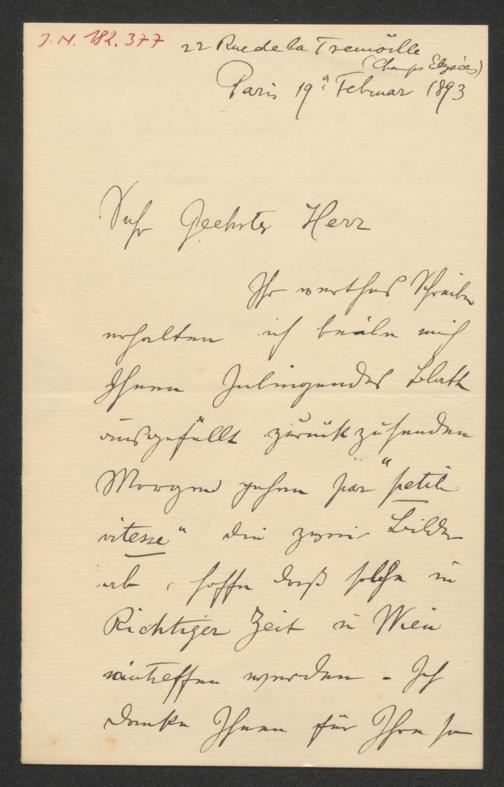 J. N. 182.377
22 Rue de la Tremoille
(Champs Elysées)
Paris 19. Februar 1893
Sehr Geehrter Herr
Ihr werthes Schreiben
erhalten ich beeile mich
Ihnen Inliegendes Blatt
ausgefüllt zurück zu senden
Morgen gehen par "petite
vitesse" die zwei Bilder
ab, hoffe daß solche in
Richtiger Zeit in Wien
eintreffen werden - Ich
danke Ihnen für Ihre so